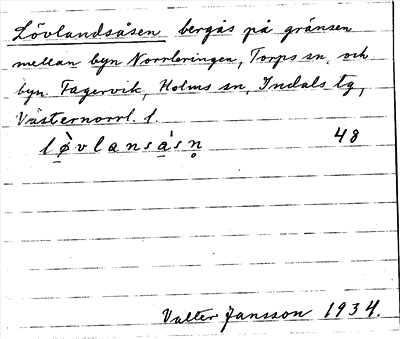 Lövlandsåsen bergås på gränsen
mellan byn Norrleringen, Torps sn, och
byn Fagervik, Holms sn, Indals tg,
Västernorrl. l.
lø̀vlansa̍sn̥ 48
Valter Jansson 1934.